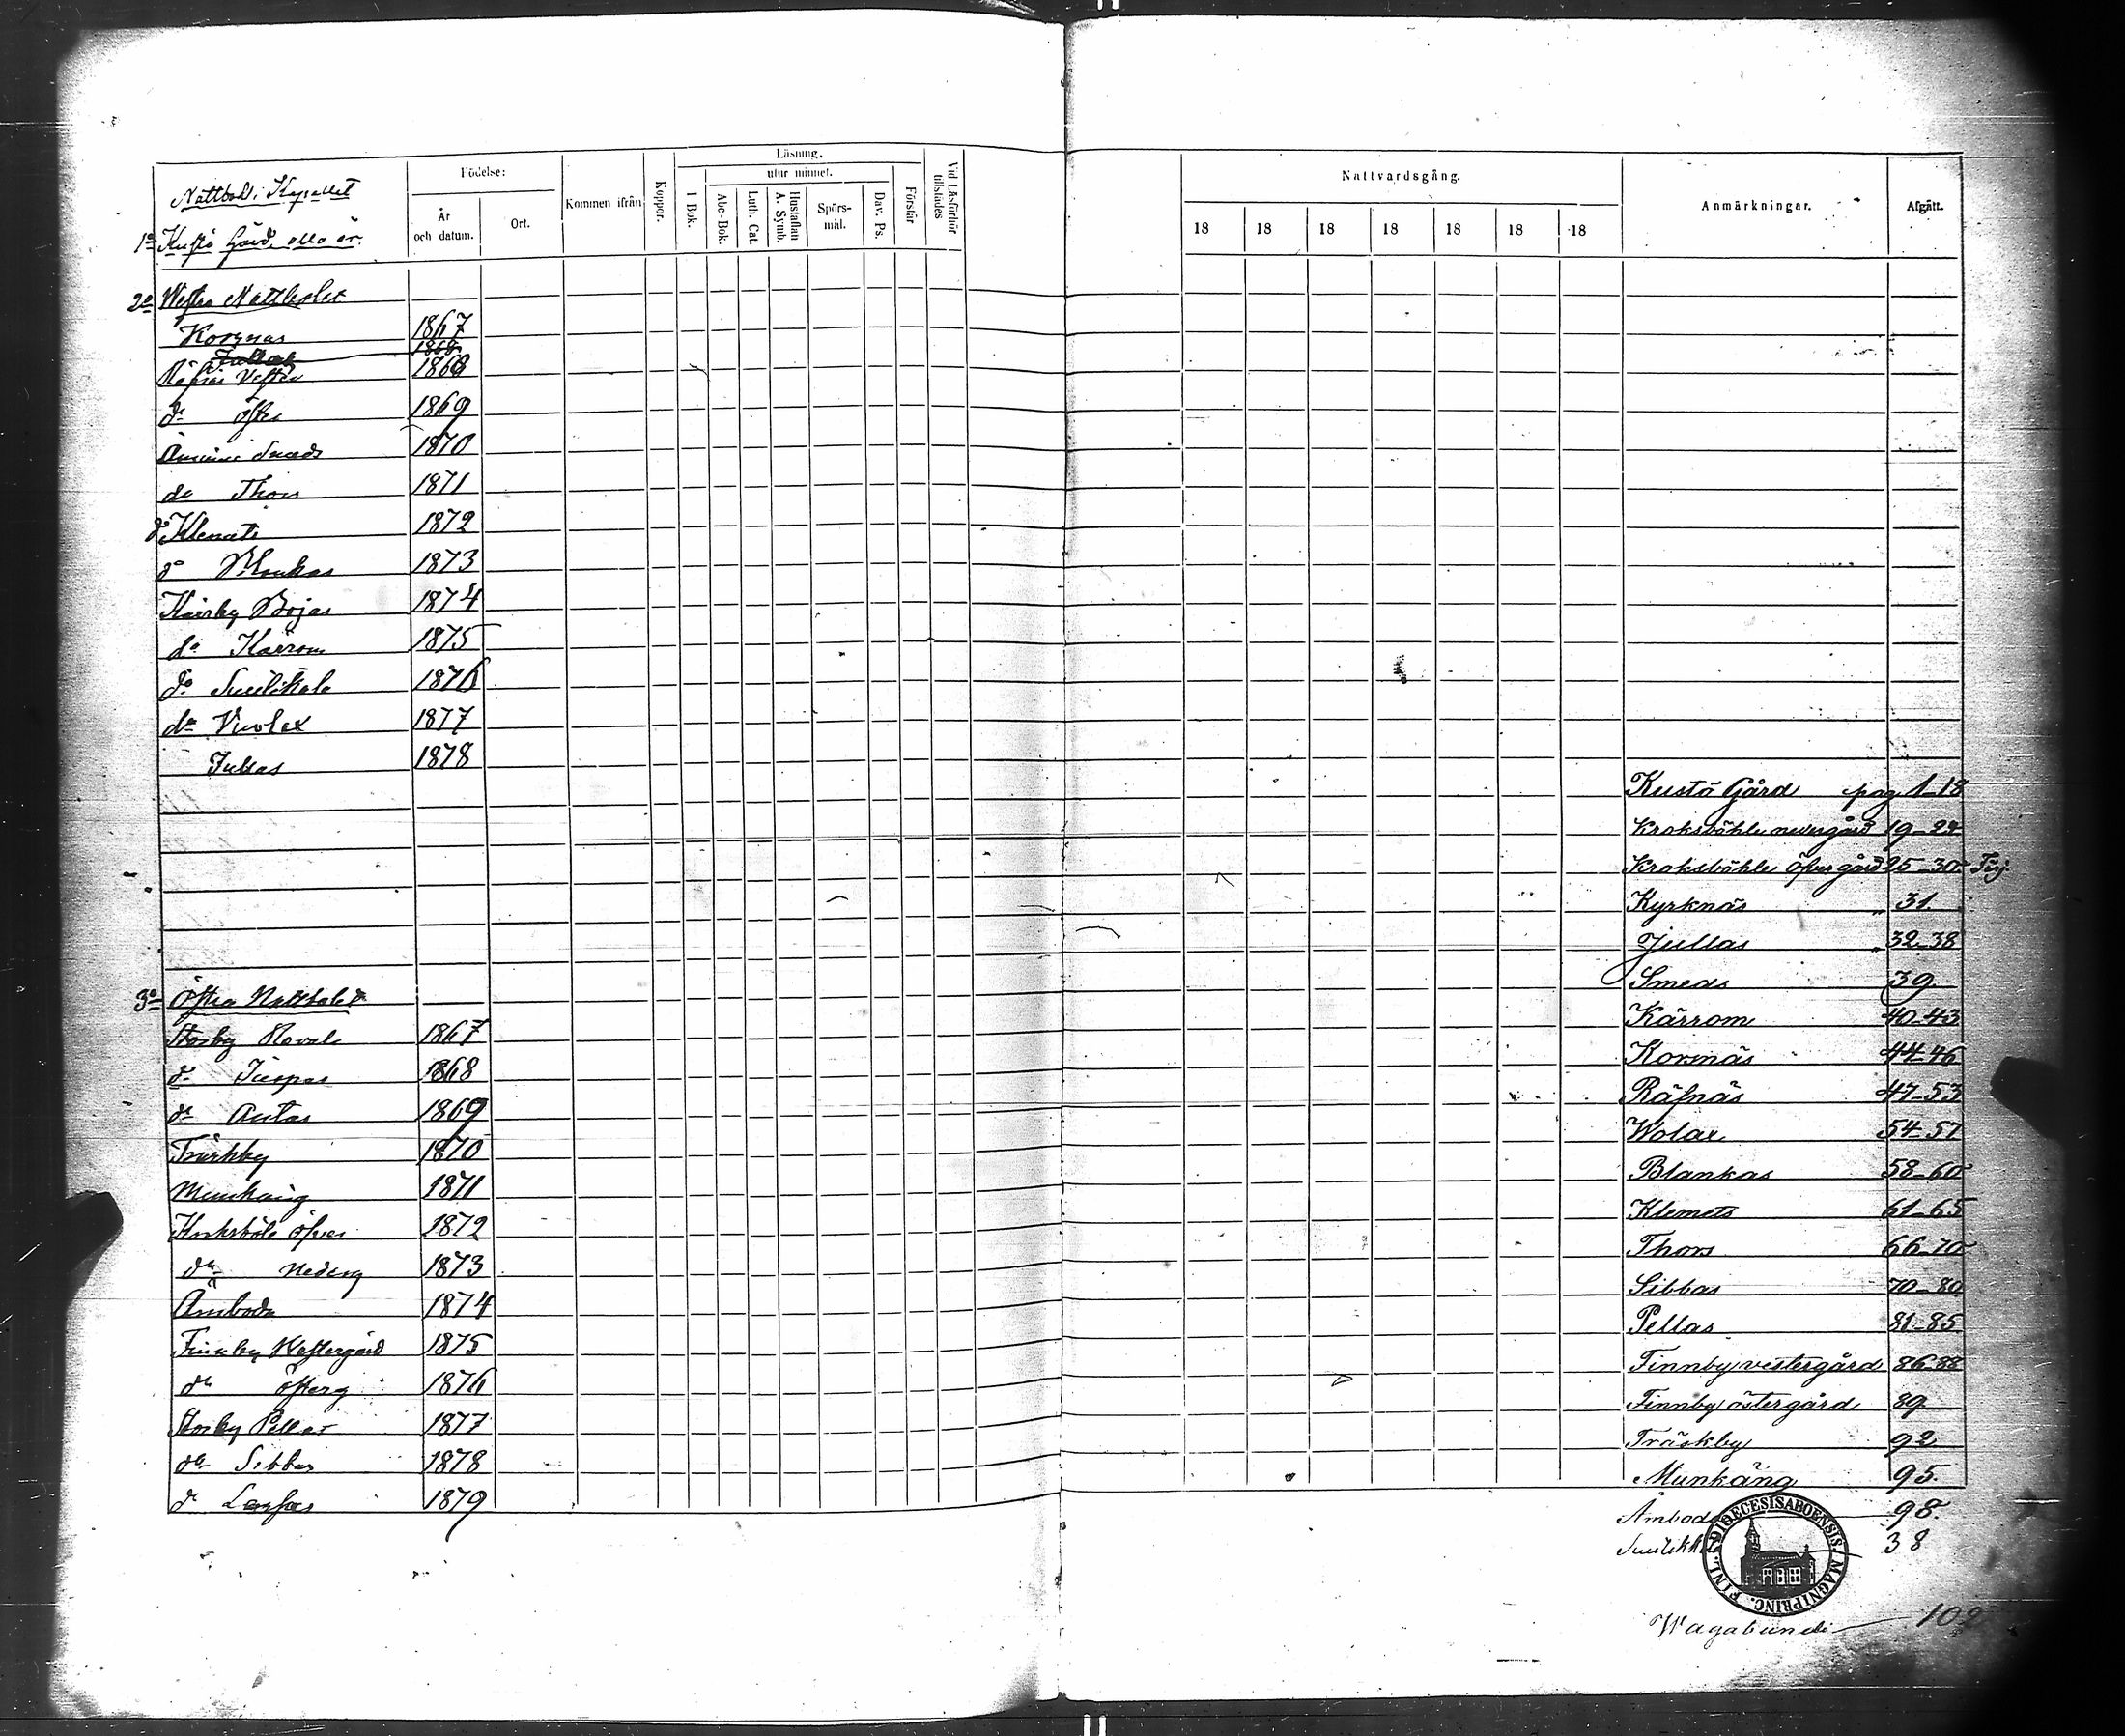 Födelse:
År och datum.
Ort.
Kommen ifrån
Koppor.
Läsning.
utur minnet.
I Bok.
Abc-Bok.
Luth. Cat.
Hustaflan A. Symb.
Spörs-mål.
Dav. Ps.
Förstår
Vid Läsförhör tillstädes
Nattvardsgång.
18 18 18 18 18 18 18
Anmärkningar.
Afgått.
Kapellet
1o Kustö Gård alla år.
2o Westra Nattbolet
Korsnäs 1867
Jullas 1868
Räfnäs Vestra 1868
do Östra 1869
Smeds 1870
do Thors 1871
do Klemets 1872
do Blankas 1873
Bojas 1874
do Kärrom 1875
do 1876
do 1877
Jullas 1878
3o Östra Nattbolet
Storby 1867
do 1868
do 1869
Träskby 1870
Munkäng 1871
Kroksböle öfver 1872
do Nederg 1873
Åmboda 1874
Finnby Westergård 1875
do Österg 1876
Storby Pellas 1877
do Sibbas 1878
do 1879
Kustö Gård pag 1-18
Kroksböhle nedergård 19-24
Kroksböhle öfvergård 25-30
Kyrknäs " 31.
Jullas " 32-38
Smeds 39
Kärrom 40-43
Korsnäs 44-46
Räfnäs 47-53
Wolax 54-57
Blankas 58-60
Klemets 61-65
Thors 66-70
Sibbas 70-80
Pellas 81-85
Finnby vestergård 86-88
Finnby östergård 89
Träskby 92
Munkäng 95.
Åmboda 98.
38
FINL. DIOECESIS ABOENSIS. MAGNI PRINC.
Wagabunder 102